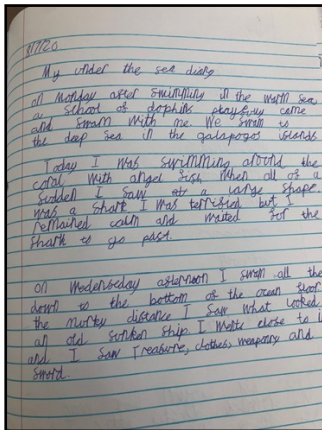 8/7/20
My under the sea diary
On Monday after swimming in the warm sea
a school of dophins playfully came
and swam with me. We swam is
the deep sea in the galapogos islands
Today I was swimming around the
coral with angel fish when all of a
sudden I saw a large shape.
was a shark I was terrified but I
remained calm and waited for the
shark to go past.
On Wedensday afternoon I swam all the
down to the bottom of the ocean floor
the murky distance I saw what looked
an old sunken ship. I close to i
and I saw treasure, clothes, weaponry and
sword.